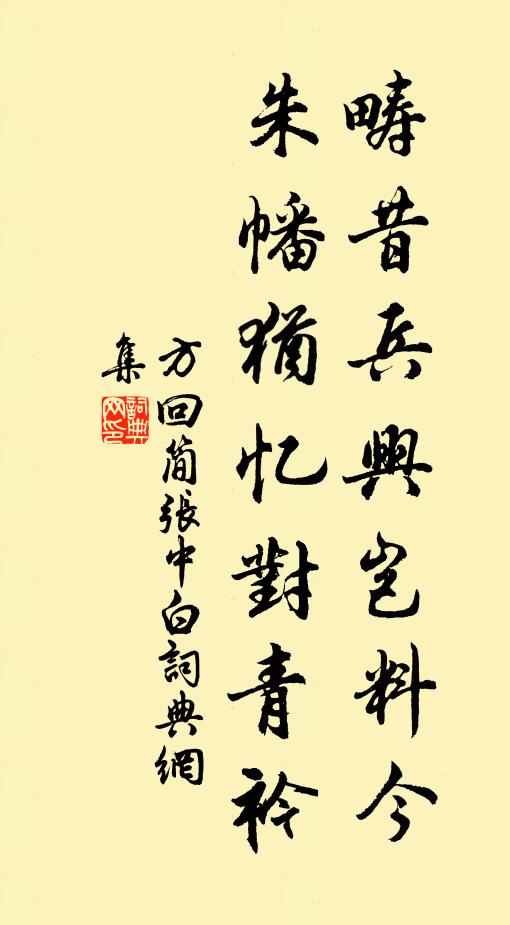 疇昔兵興豈料今
朱幡猶忆對青衿
方回简張中白詞典網
集
詞典網印